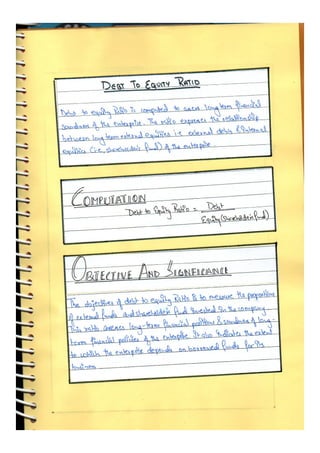 DEBT TO EQUITY RATIO
Debt to equity Ratio is computed to assess long term financial
soundness of the enterprise. The ratio expresses the relationship
between long term external equities i.e. external debts & internal
equities (i.e. shareholders fund) of the enterprise.
COMPUTATION
Debt to Equity Ratio = Debt
Equity (Shareholder's fund)
OBJECTIVE AND SIGNIFICANCE
The objectives of debt to equity Ratio is to measure the proportion
of external funds and shareholders fund invested in the company.
This ratio assess long-term financial position & soundness of long-
term financial policies of the enterprise. It also indicates the extent
to which the enterprise depends on borrowed funds for its
business